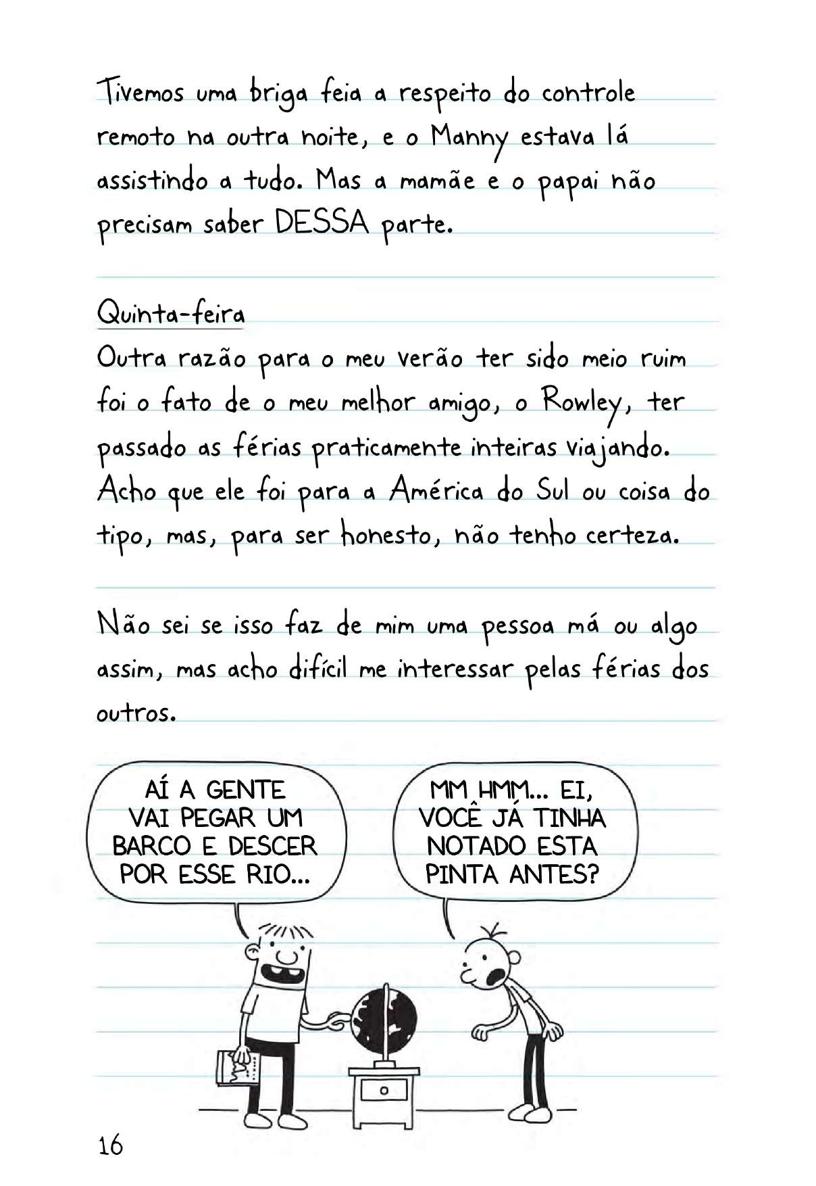 Tivemos uma briga feia a respeito do controle
remoto na outra noite, e o Manny estava lá
assistindo a tudo. Mas a mamãe e o papai não
precisam saber DESSA parte.
Quinta-feira
Outra razão para o meu verão ter sido meio ruim
foi o fato de o meu melhor amigo, o Rowley, ter
passado as férias praticamente inteiras viajando.
Acho que ele foi para a América do Sul ou coisa do
tipo, mas, para ser honesto, não tenho certeza.
Não sei se isso faz de mim uma pessoa má ou algo
assim, mas acho difícil me interessar pelas férias dos
outros.
AÍ A GENTE
VAI PEGAR UM
BARCO E DESCER
POR ESSE RIO...
MM HMM... EI,
VOCÊ JÁ TINHA
NOTADO ESTA
PINTA ANTES?
16